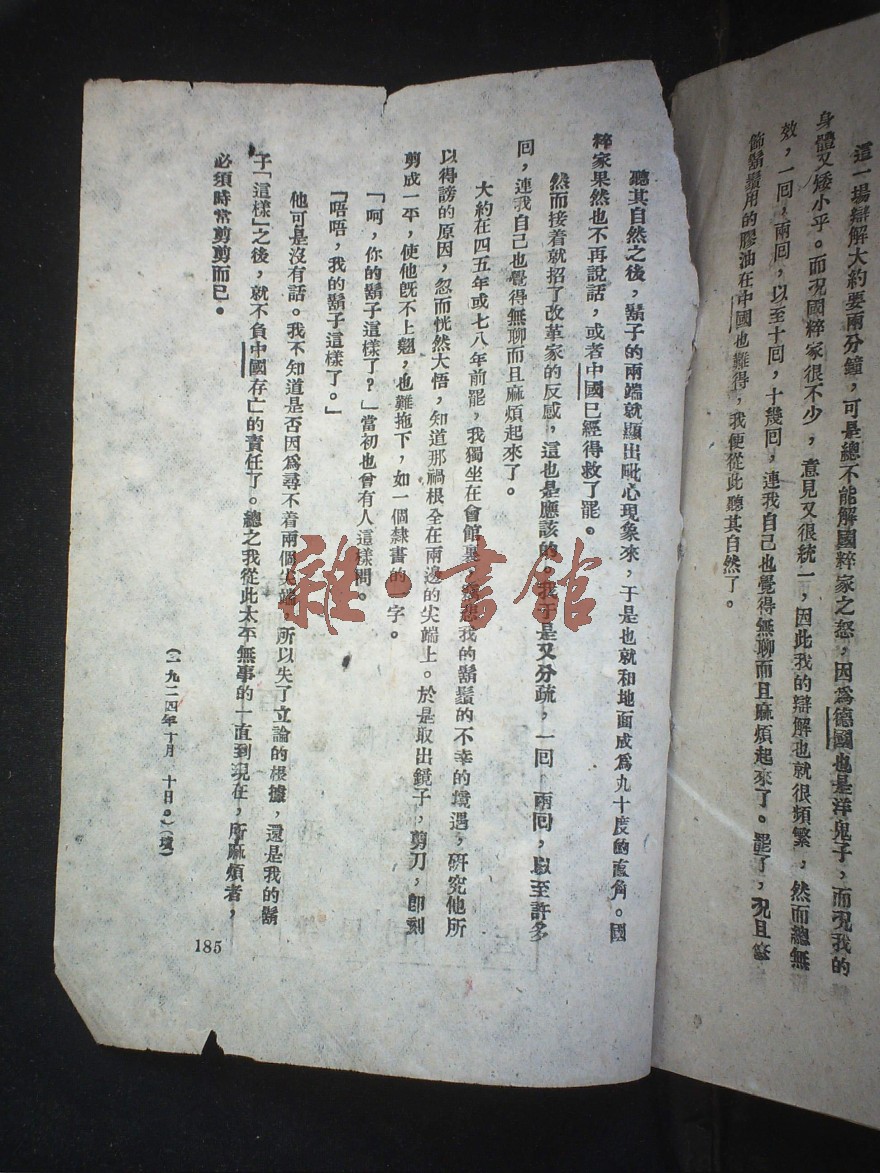 這一場辯解大約要兩分鐘，可是總不能解國粹家之怒，因爲德國也是洋鬼子，而況我的
身體又矮小乎。而況國粹家很不少，意見又很統一，因此我的辯解也就很頻繁，然而總無
效，一回，兩回，以至十回，十幾回，連我自己也覺得無聊而且麻煩起來了。罷了，況且修
飾鬍鬚用的膠油在中國也難得，我便從此聽其自然了。
聽其自然之後，鬍子的兩端就顯出毗心現象來，于是也就和地面成爲九十度的直角。國
粹家果然也不再說話，或者中國已經得救了罷。
然而接着就招了改革家的反感，這也是應該的。我于是又分疏，一回，兩回，以至許多
回，連我自己也覺得無聊而且麻煩起來了。
大約在四五年或七八年前罷，我獨坐在會館裏，竊悲我的鬍鬚的不幸的境遇，研究他所
以得謗的原因，忽而恍然大悟，知道那禍根全在兩邊的尖端上。於是取出鏡子，剪刀，卽刻
剪成一平，使他旣不上翹，也難拖下，如一個隸書的一字。
「呵，你的鬍子這樣了？」當初也曾有人這樣問。
「唔唔，我的鬍子這樣了。」
他可是沒有話。我不知道是否因爲尋不着兩個尖端，所以失了立論的根據，還是我的鬍
子「這樣」之後，就不負中國存亡的責任了。總之我從此太平無事的一直到現在，所麻煩者，
必須時常剪剪而已。
（一九二四年十月　十日。）（墳）
185
雜・書館